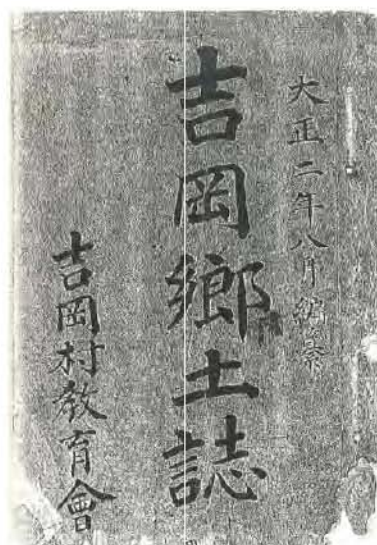 大正二年八月編纂
吉岡郷土誌
吉岡村教育會